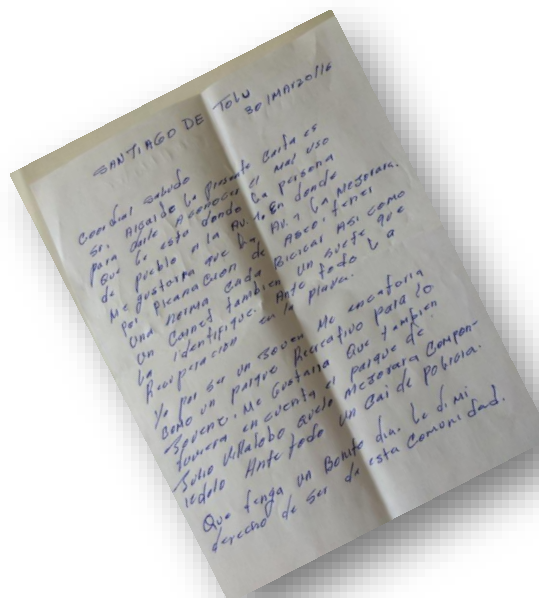 SANTIAGO DE Tolu
30/MARZO/16
Cordial saludo
Sr. Alcalde la presente carta es
para darle A conocer el mal uso
que le esta dando la persona
de pueblo a la AV. 1. En donde
Me gustaria que la AV. 1 la Mejorara.
Por Planación de Aseo. tener
una norma cada Bicicar Asi como
un carnet tambien un suete que
la identifique. Ante todo la
Recuperacion en la playa.
Yo por ser un Joven Me encataria
como un parque Recreativo para lo
Jovene. Me Gustaria Que tambien
tuviera en cuenta el parque de
Julio Villalobo Quelo Mejorara Compon-
iedolo Ante todo un Cai de Pobicia.
Que tenga un Bonito dia. Le di mi
derecho de Ser de esta comunidad.